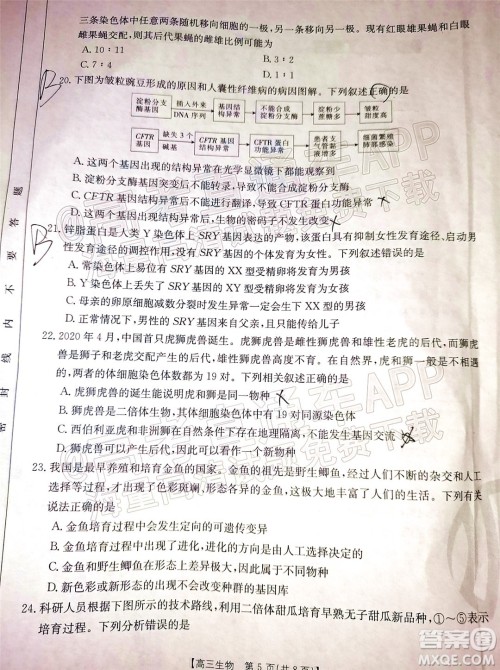 三条染色体中任意两条随机移向细胞的一极,另一条移向另一极),现利用纯种白眼果蝇和白眼
雌果蝇交配,则其后代果蝇的雌雄比例可能为
A. 10∶11 B. 2∶3
C. 7∶8 D. 1∶1
20. 下图为皱粒豌豆形成的原因和人囊性纤维病的病因图解。下列叙述正确的是
淀粉分支酶基因 插入外来DNA序列 基因结构异常 不能合成淀粉分支酶 淀粉少蔗糖多 皱粒甜度高
CFTR基因 缺失3个碱基 CFTR基因结构异常 CFTR蛋白功能异常 患者支气管黏液增多 细菌繁殖肺部感染
A. 这两个基因出现的结构异常在光学显微镜下都能观察到
B. 淀粉分支酶基因突变后不能转录,导致不能合成淀粉分支酶
C. CFTR基因结构异常后不能进行翻译,导致CFTR蛋白功能异常
D. 这两个基因突变后,生物的密码子不发生改变
21. 锌脂蛋白是人类Y染色体上SRY基因表达的产物,该蛋白质具有抑制女性发育途径、启动男
性发育途径的调控作用,没有SRY基因的个体发育为女性。下列叙述错误的是
A. 常染色体上易位有SRY基因的XX型受精卵将发育为男孩
B. Y染色体上丢失SRY基因的XY型受精卵将发育为女孩
C. 母亲的卵原细胞减数分裂时发生突变易导致其生出XX型男孩
D. 正常情况下,男性的SRY基因来自其祖父
22. 2020年4月,中国首只虎狮虎兽诞生。虎狮虎兽是雌性狮虎兽和雄性老虎的后代,而狮虎
兽是狮子和老虎交配产生的后代,雄性狮虎兽高度不育。在自然条件下,狮和虎是不相遇
的,两者的体细胞染色体数都为19对。下列叙述正确的是
A. 虎狮虎兽的诞生能说明虎与狮属于同一物种
B. 狮虎兽是二倍体生物,其体细胞染色体中有19对同源染色体
C. 西伯利亚虎和非洲狮的天然生存环境存在地理隔离,不能发生基因交流
D. 狮虎兽可以产生后代,为一个新物种
23. 我国是最早养殖和培育金鱼的国家。金鱼的祖先是野生鲫鱼,经过人们不断的杂交和人工
选择等过程,才出现了颜色斑斓、形态各异的金鱼,这极大地丰富了人们的生活。下列有关
说法正确的是
A. 金鱼培育过程中会发生定向的可遗传变异
B. 野生鲫鱼进化的方向是由人工选择决定的
C. 金鱼培育过程中,新基因的产生是由人工选择实现的
D. 新色彩或新形态类型金鱼的诞生会影响野生鲫鱼的基因库
24. 科研人员根据下图所示的技术路线,利用二倍体甜瓜培育早熟无子甜瓜新品种,①~⑤表示
培育过程。下列分析错误的是
【高三生物 第5页(共8页)】
密 封 线 内 不 要 答 题